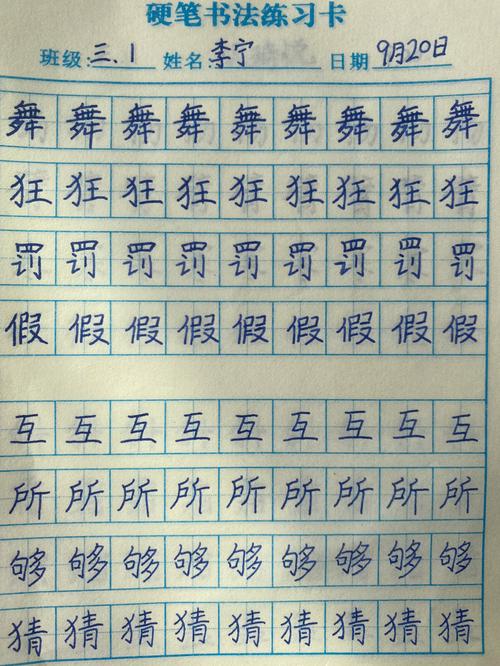 硬笔书法练习卡
班级:三.1 姓名:李宁 日期9月20日
舞舞舞舞舞舞舞舞舞
狂狂狂狂狂狂狂狂狂
罚罚罚罚罚罚罚罚罚
假假假假假假假假假
互互互互互互互互互
所所所所所所所所所
够够够够够够够够够
猜猜猜猜猜猜猜猜猜